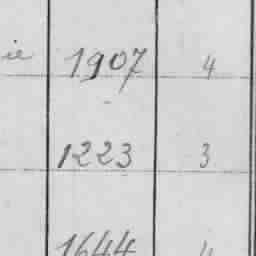 ie 1907 4
1223 3
1644 4